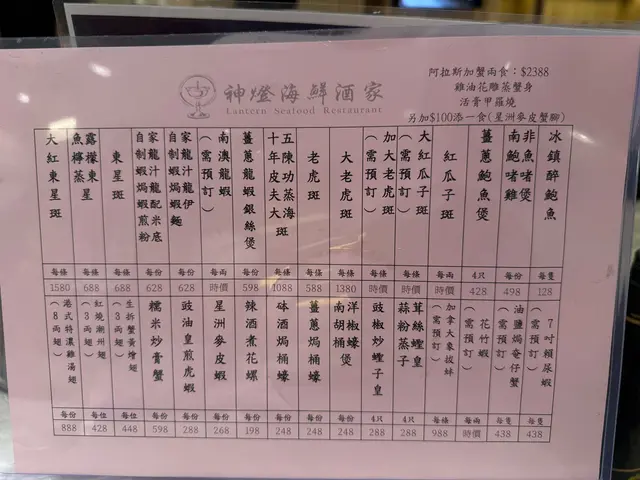 神燈海鮮酒家
Lantern Seafood Restaurant
阿拉斯加蟹兩食：$2388
雞油花雕蒸蟹身
活膏甲羅燒
另加$100添一食(星洲麥皮蟹腳)
冰鎮醉鮑魚 每隻 128
非魚啫煲
南鮑啫雞 每份 498
薑蔥鮑魚煲 4只 428
紅瓜子斑 每條 時價
大紅瓜子斑
(需預訂) 每條 時價
加大老虎斑
(需預訂) 每條 時價
大老虎斑 每條 1380
老虎斑 每條 588
五陳功蒸海斑
十年皮夫大 每條 1088
薑蔥龍蝦銀絲煲 每份 598
南澳龍蝦
(需預訂) 每兩 時價
家龍汁龍伊
自制蝦焗蝦麵 每份 628
家龍汁龍配米底
自制蝦焗蝦煎粉 每份 628
東星斑 每條 688
露檬東星
魚檸蒸 每條 688
大紅東星斑 每條 1580
7吋賴尿蝦
(需預訂) 每隻 438
油鹽焗奄仔蟹
(需預訂) 每隻 438
花竹蝦
(需預訂) 每兩 時價
加拿大象拔蚌
(需預訂) 每條 988
茸絲蟶皇
蒜粉蒸子 4只 288
豉椒炒蟶子皇 4只 288
洋椒蠔煲
南胡桶 每份 248
薑蔥焗桶蠔 每份 248
砵酒焗桶蠔 每份 248
辣酒煮花螺 每份 198
星洲麥皮蝦 每份 268
豉油皇煎虎蝦 每份 288
糯米炒膏蟹 每份 598
生拆蟹黃燴翅
(3兩翅) 每位 448
紅燒潮州翅
(3兩翅) 每位 428
港式特濃雞湯翅
(8兩翅) 每份 888